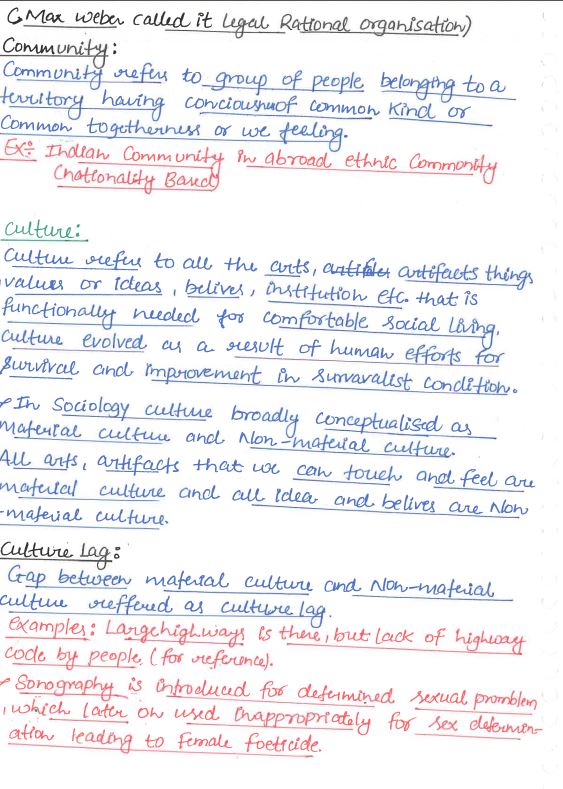 (Max weber called it legal Rational organisation)
Community:
Community refers to group of people belonging to a
territory having conciousnusof common Kind or
Common togetherness or we feeling.
Ex:- Indian Community in abroad ethnic Community
(nationality Based)
Culture:
Culture refers to all the arts, artifacts things
values or ideas, belives, institution etc. that is
functionally needed for comfortable social living.
Culture evolved as a result of human efforts for
survival and improvement in survavalist condition.
In Sociology culture broadly conceptualised as
material culture and Non-material culture.
All arts, artifacts that we can touch and feel are
material culture and all idea and belives are Non
-material culture.
Culture Lag:
Gap between material culture and Non-material
culture reffered as culture lag.
Examples: Large highways is there, but lack of highway
code by people. (for reference).
Sonography is introduced for determined sexual promblem
, which later on used inappropriately for sex determin-
ation leading to female foeticide.